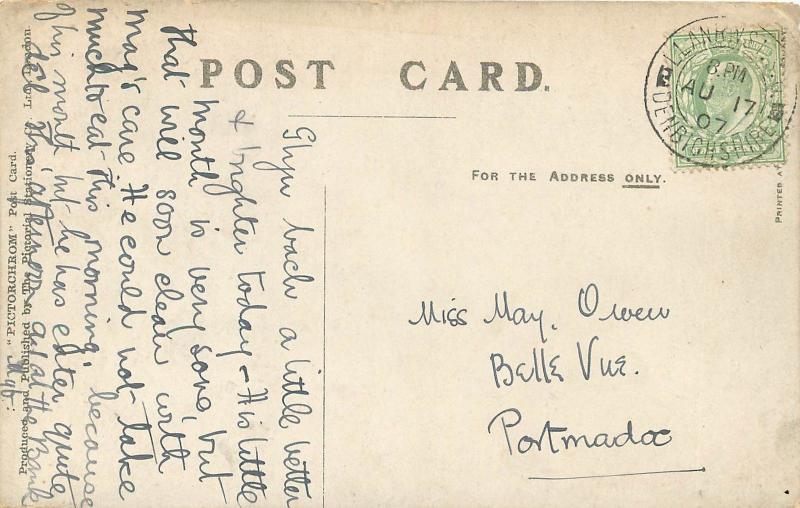 POST CARD.
FOR THE ADDRESS ONLY.
LLANRWST
8. PM
AU 17
07
DENBIGHSHIRE
PRINTED AT
Glyn bach a little better
& brighter today - His little
month is very sore, but
that will soon clear with
May's care. He could not take
much to eat this morning, because
of his mouth but he has eaten quite
this afternoon at the Bank
Miss May. Owen
Belle Vue.
Portmadoc
"PICTORCHROM" Post Card.
Produced and Published by The Pictorial Stationery Co., Ltd., London.